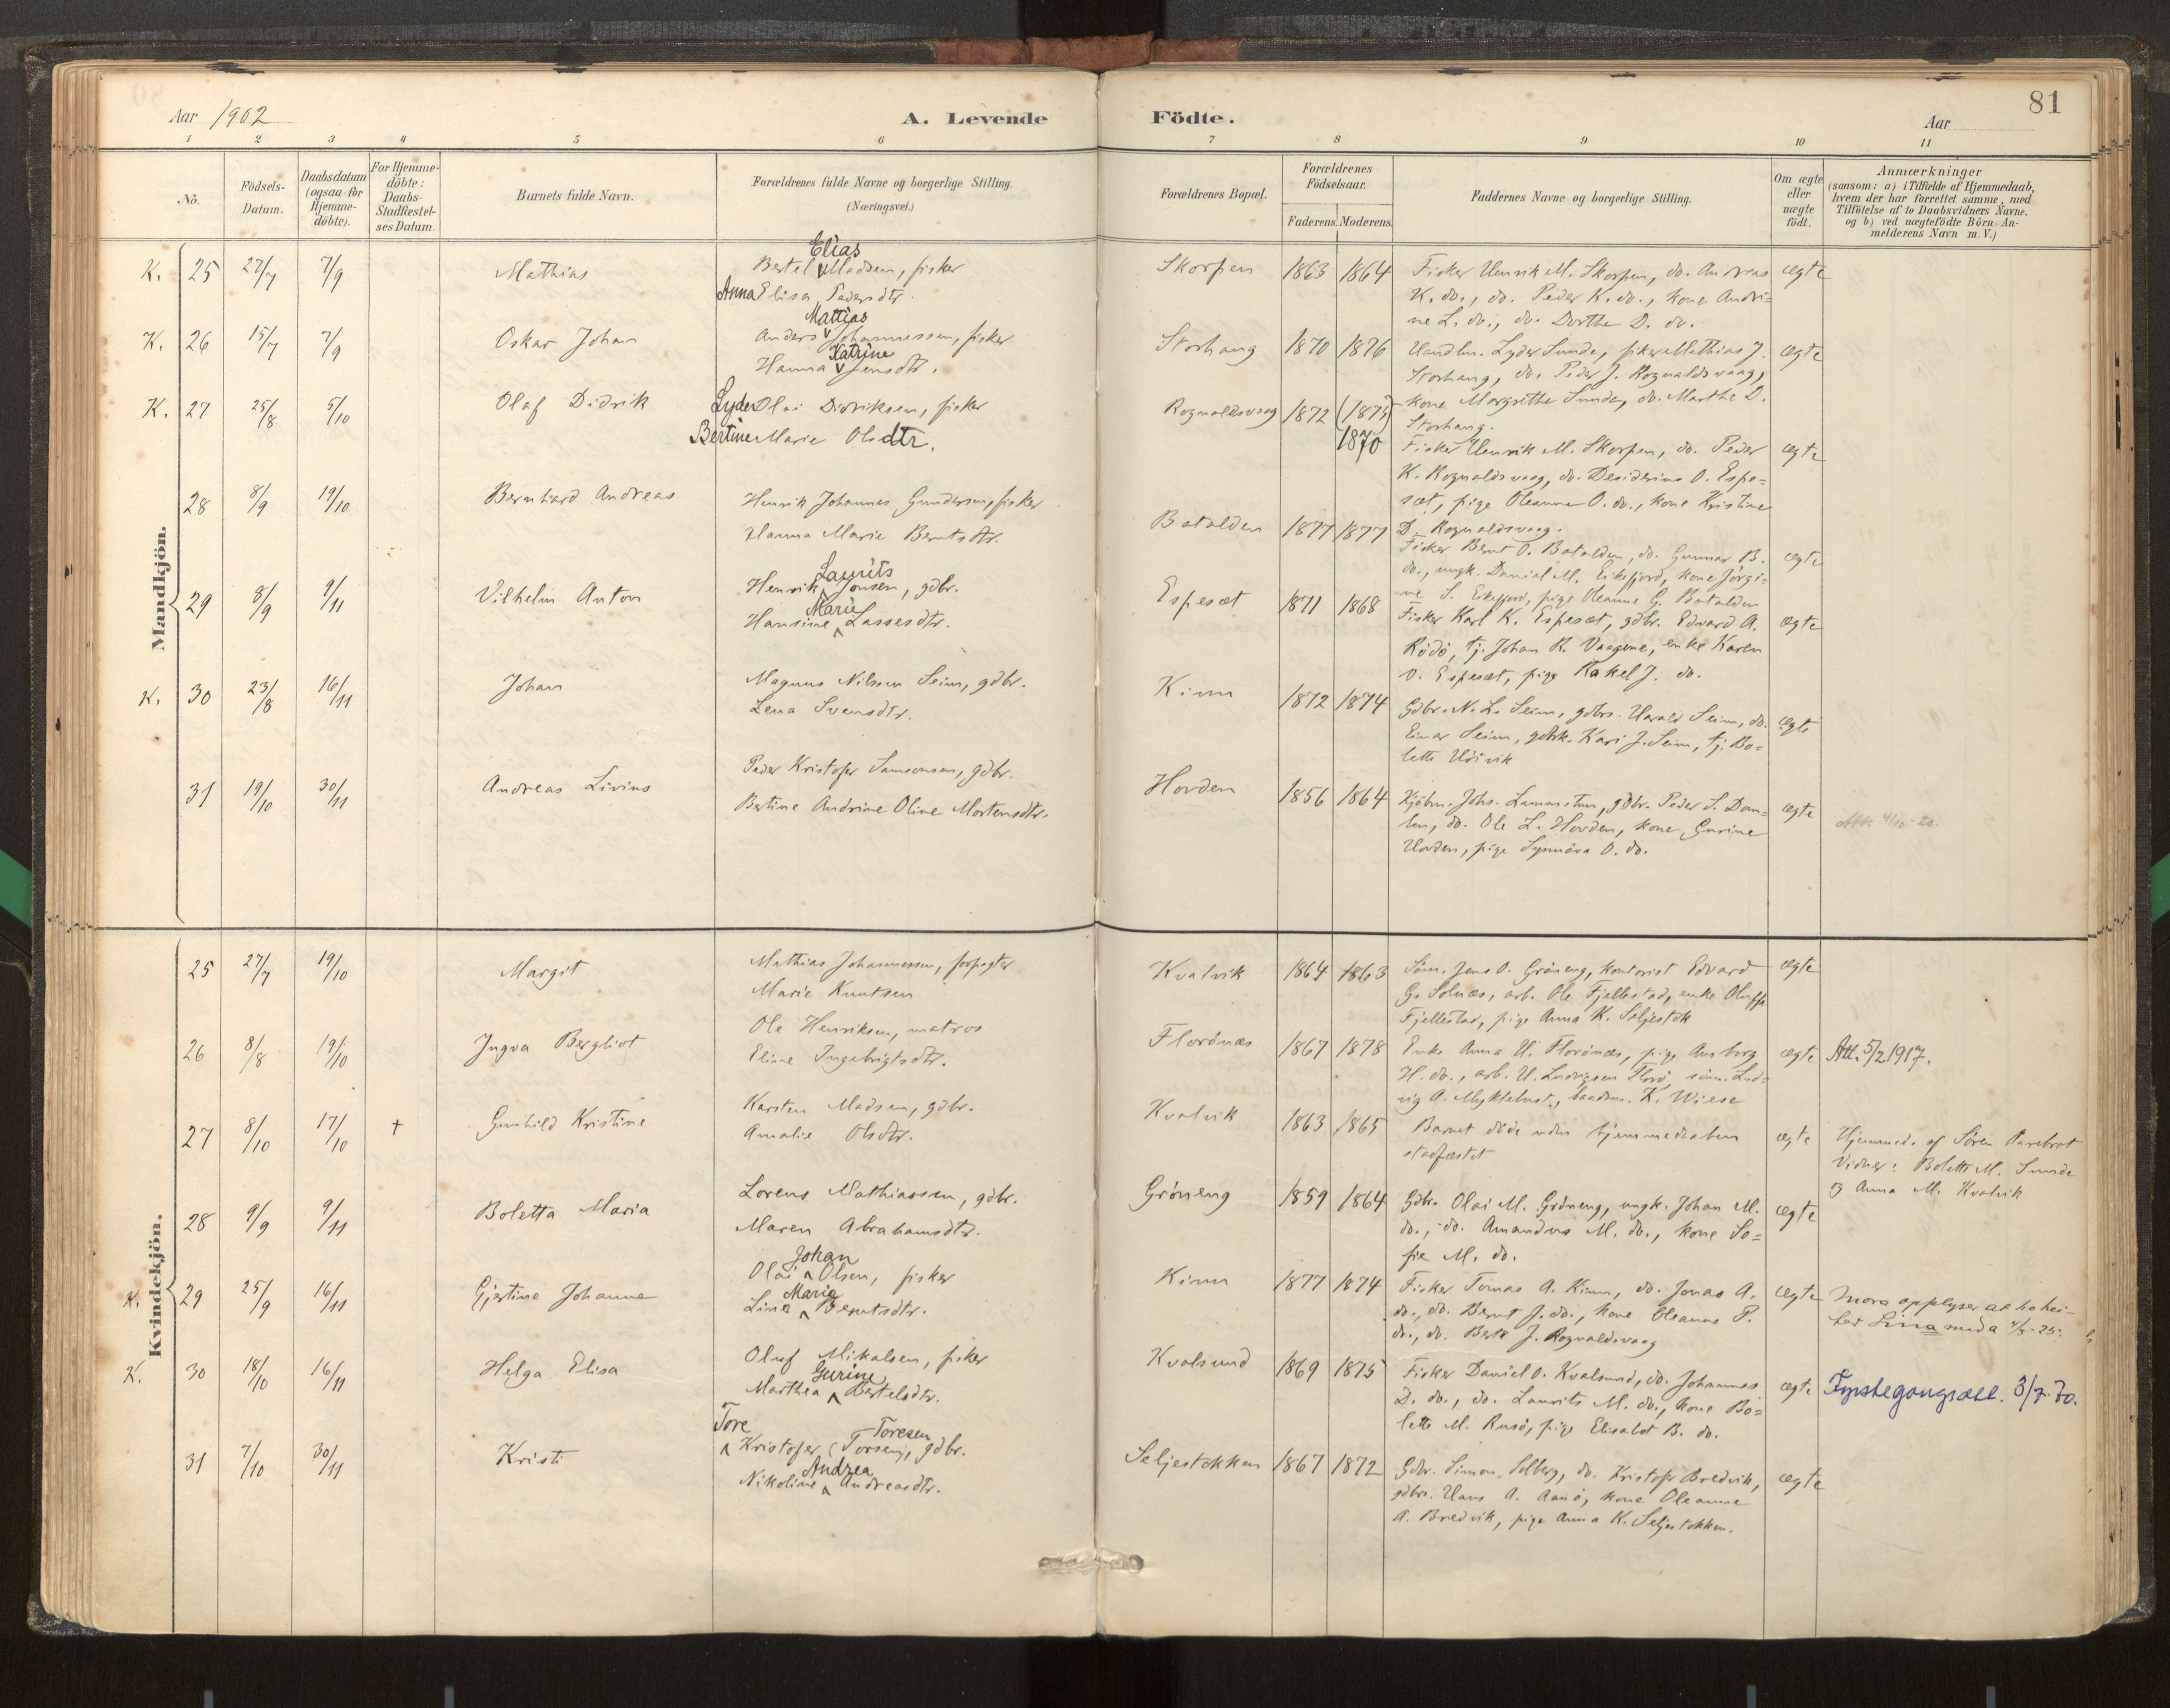 81
Aar 1902
A. Levende Födte.
Aar
1 2 3 4 5 6 7 8 9 10 11
No.
Födsels-Datum.
Daabsdatum (ogsaa for Hjemme-döbte).
For Hjemme-döbte: Daabs-Stadfæstel-ses Datum.
Barnets fulde Navn.
Forældrenes fulde Navne og borgerlige Stilling.
(Næringsvei.)
Forældrenes Bopæl.
Forældrenes Födselsaar.
Faderens. Moderens.
Faddernes Navne og borgerlige Stilling.
Om ægte eller uægte födt.
Anmærkninger
(saasom: a) i Tilfælde af Hjemmedaab,
hvem der har forrettet samme, med
Tilföielse af to Daabsvidners Navne,
og b) ved uægtefödte Börn An-
melderens Navn m. V.)
Mandkjön.
K. 25 27/7 7/9 Mathias
Elias
Bertel Madsen, fisker
Anna Elisa Pedersdtr.
Skorpen 1863 1864
Fisker Henrik M. Skorpen, do. Andreas
K. do., do. Peder K. do., kone Andri=
ne L. do., do. Dorthe D. do.
ægte
K. 26 15/7 7/9 Oskar Johan
Mattias
Anders Johannessen, fisker
Katrine
Hanna Jensdtr.
Storhang 1870 1876
Handlm. Lyder Sunde, fisker Mathias J.
Storhang, do. Peder J. Rognaldsvaag,
kone Margrethe Sunde, do. Marthe D.
Storhang.
ægte
K. 27 25/8 5/10 Olaf Didrik
Lyder Olai Didriksen, fisker
Bertine Marie Olsdtr.
Rognaldsvaag 1872 (1875)
1870
Fisker Henrik M. Skorpen, do. Peder
K. Rognaldsvaag, do. Desiderius O. Espe=
sæt, pige Oleanne O. do., kone Kristine
D. Rognaldsvaag.
ægte
28 8/9 19/10 Bernhard Andreas
Henrik Johannes Gundersen, fisker
Hanna Marie Berntsdtr.
Batalden 1877 1877
Fisker Bernt O. Batalden, do. Gunnar B.
do., ungk. Daniel M. Eikefjord, kone Jörgi=
ne S. Eikefjord, pige Oleanne G. Batalden
ægte
29 8/9 9/11 Vilhelm Anton
Laurits
Henrik Jonsen, gdbr.
Marie
Hansine Lassesdtr.
Espesæt 1871 1868
Fisker Karl K. Espesæt, gdbr. Edvard A.
Rödö, tj. Johan R. Vaagene, enke Karen
O. Espesæt, pige Rakel J. do.
ægte
K. 30 23/8 16/11 Johan
Magnus Nilssen Seim, gdbr.
Lena Svensdtr.
Kinn 1872 1874
Gdbr. N. L. Seim, gdbrs. Harald Seim, do.
Einar Seim, gdbrk. Kari J. Seim, tj. Bo=
lette Höivik
ægte
31 19/10 30/11 Andreas Livius
Peder Kristofer Samsonsen, gdbr.
Bertine Andrine Oline Mortensdtr.
Hovden 1856 1864
Kjöbm. Johs. Lammetun, gdbr. Peder S. Dom=
ben, do. Ole L. Hovden, kone Gurine
Hovden, pige Synnöva O. do.
ægte
Att. 4/10-20.
Kvindekjön.
25 27/7 19/10 Margit
Mathias Johannessen, forpagter
Marie Knutsen
Kvalvik 1864 1863
Söm. Jens O. Gröneng, kontorist Edvard
G. Solnæs, arb. Ole Fjellestad, enke Oluffa
Fjellestad, pige Anna K. Seljestok
ægte
26 8/8 19/10 Ingva Bergliot
Ole Henriksen, matros
Eline Ingebrigtsdtr.
Florönæs 1867 1878
Enke Anna H. Florönæs, pige Ansborg
H. do., arb. H. Ludvigsen Florö, söm. Lud=
vig A. Myklebust, baadsm. K. Wiese
ægte
Att. 5/2 1917.
27 8/10 17/10 + Gunhild Kristine
Karsten Madsen, gdbr.
Amalie Olsdtr.
Kvalvik 1863 1865
Barnet döde uden hjemmedaaben
stadfæstet
ægte
Hjemmed. af Sören Barebrot
Vidner: Bolette M. Sunde
og Anna M. Kvalvik
28 9/9 9/11 Boletta Maria
Lorens Mathiassen, gdbr.
Maren Abrahamsdtr.
Gröneng 1859 1864
Gdbr. Olai M. Gröneng, ungk. Johan M.
do., do. Amandus M. do., kone So=
fie M. do.
ægte
K. 29 25/9 16/11 Gjertine Johanne
Johan
Olai Olsen, fisker
Marie
Lina Berntsdtr.
Kinn 1877 1874
Fisker Tomas A. Kinn, do. Jonas A.
do., do. Bernt J. do., kone Oleanne P.
do., do. Berte J. Rognaldsvaag
ægte
Mora opplyser at ho hei-
ter Lina med a 4/3-25.
K. 30 18/10 16/11 Helga Elisa
Oluf Mikalsen, fisker
Gurine
Marthea Bertelsdtr.
Kvalsund 1869 1875
Fisker Daniel O. Kvalsund, do. Johannes
D. do., do. Laurits M. do., kone Bo=
lette M. Rusö, pige Elisabet B. do.
ægte
Fyrstegongsatt. 3/7-70.
31 7/10 30/11 Kristi
Tore Toresen
Kristofer (Torsen), gdbr.
Andrea
Nikoline Andreasdtr.
Seljestokken 1867 1872
Gdbr. Simon Solberg, do. Kristofer Bredvik,
gdbrs. Hans A. Aanö, kone Oleanne
A. Bredvik, pige Anna K. Seljestokken.
ægte